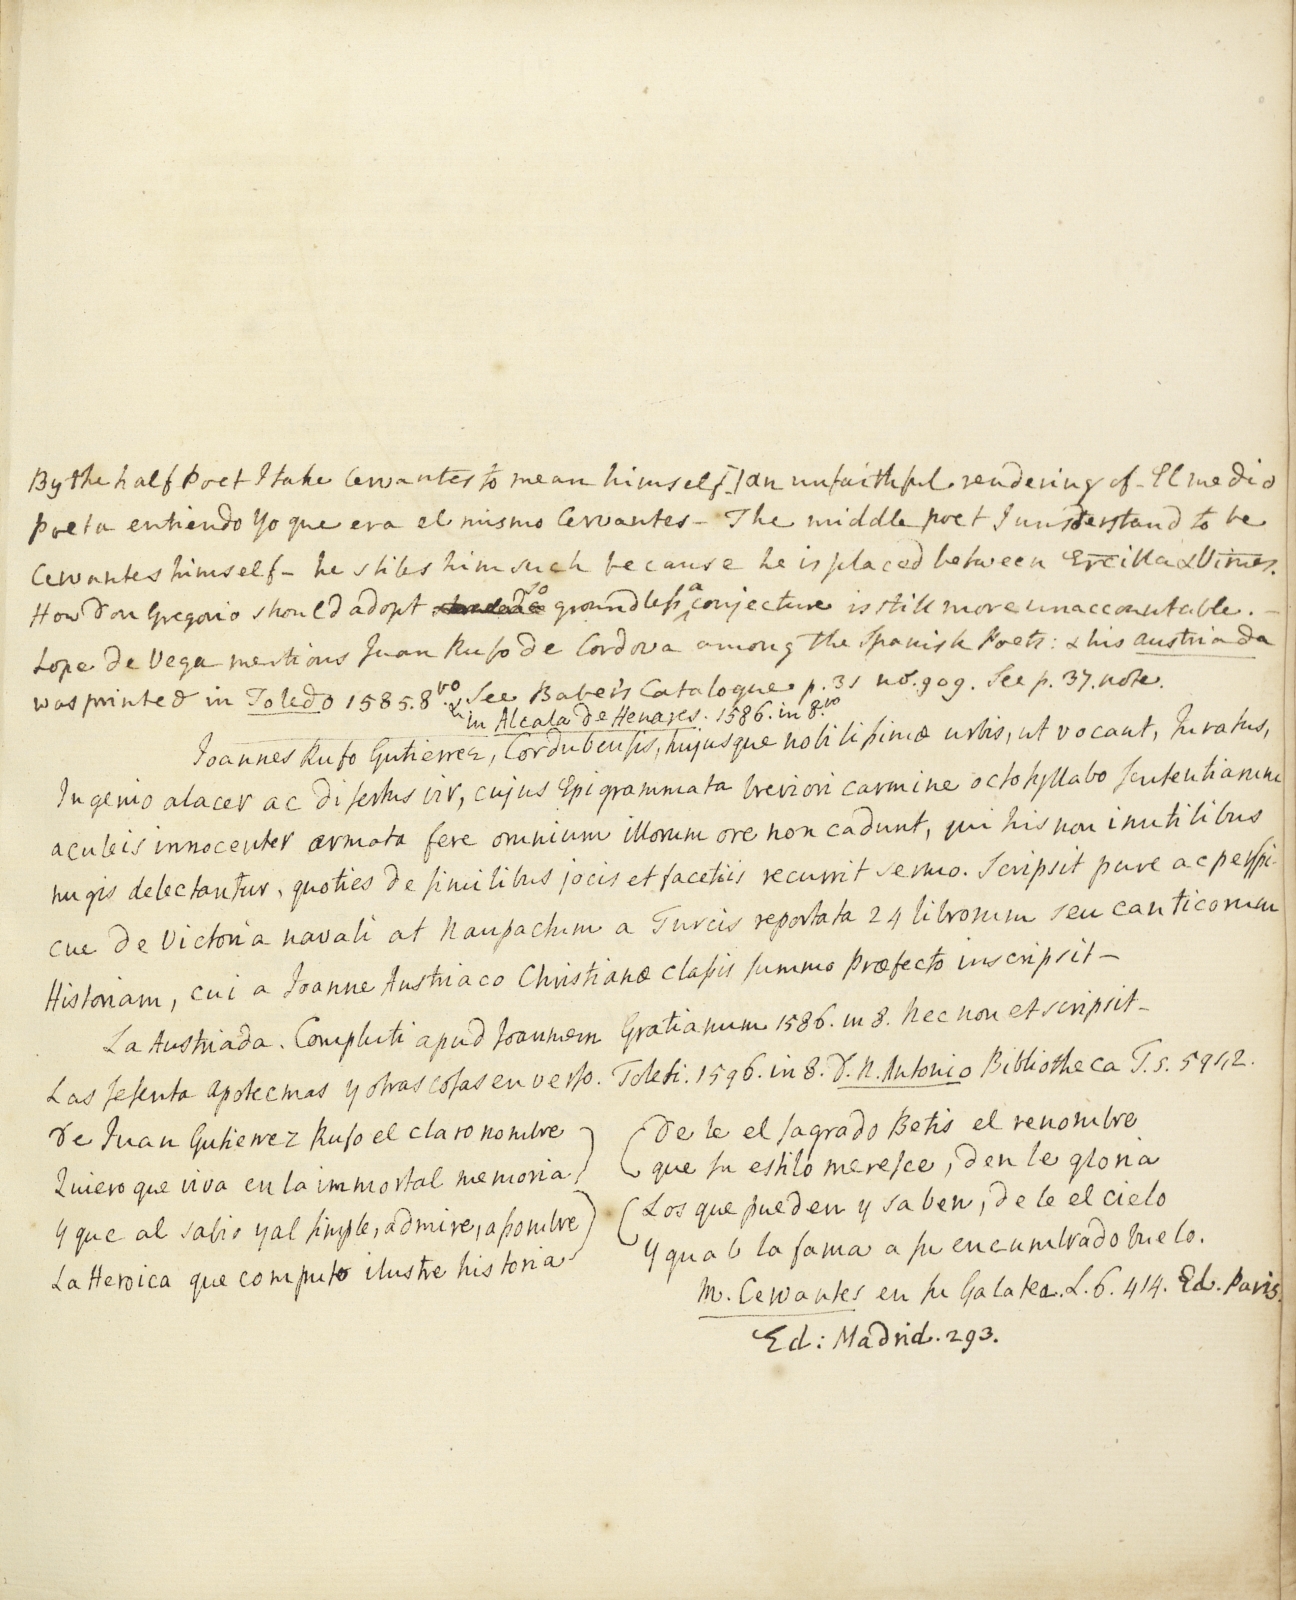 By the half Poet I take Cervantes to mean himself [-] an unfaithful rendering of - El medio
Poeta entiendo yo que era el mismo Cervantes - The middle poet I understand to be
Cervantes himself - he stiles him such because he is placed between Ercilla & Virues.
How Don Gregorio should adopt so groundless a conjecture is still more unaccountable. -
Lope de Vega mentions Juan Rufo de Cordova among the Spanish Poets: & his Austriada
was printed in Toledo 1585. 8vo. & See Baber's Catalogue p. 31 no. 909. See p. 37. note.
in Alcala de Henares. 1586. in 8.vo
Joannes Rufo Gutierrez, Cordubensis, hujusque nobilissimæ urbis, ut vocant, Juratus,
Ingenio alacer ac disertus vir, cujus Epigrammata breviori carmine octosyllabo sententiarum
aculeis innocenter armata fere omnium illorum ore non cadunt, qui his non inutilibus
nugis delectantur, quoties de similibus jocis et facetiis recurrit sermo. Scripsit pure ac perspi-
cue de Victoria navali at Naupactum a Turcis reportata 24 librorum seu canticorum
Historiam, cui a Joanne Austriaco Christianæ classis summo Præfecto inscripsit -
La Austriada. Compluti apud Joannem Gratianum 1586. in 8. Nec non et scripsit -
Las sesenta apotecmas y otras cosas en verso. Toleti. 1596. in 8. D. N. Antonio Bibliotheca T. 5. 591,2.
De Juan Gutierrez Rufo el claro nombre
Quiero que viva en la immortal memoria
Y que al sabio y al simple, admire, assombre
La Heroica que compuso ilustre historia
De le el sagrado Betis el renombre
que su estilo meresce, den le gloria
Los que pueden y saben, de le el cielo
Y guale la fama a su encumbrado buelo.
M. Cervantes en su Galatea. L. 6. 414. Ed. Paris.
Ed: Madrid. 293.